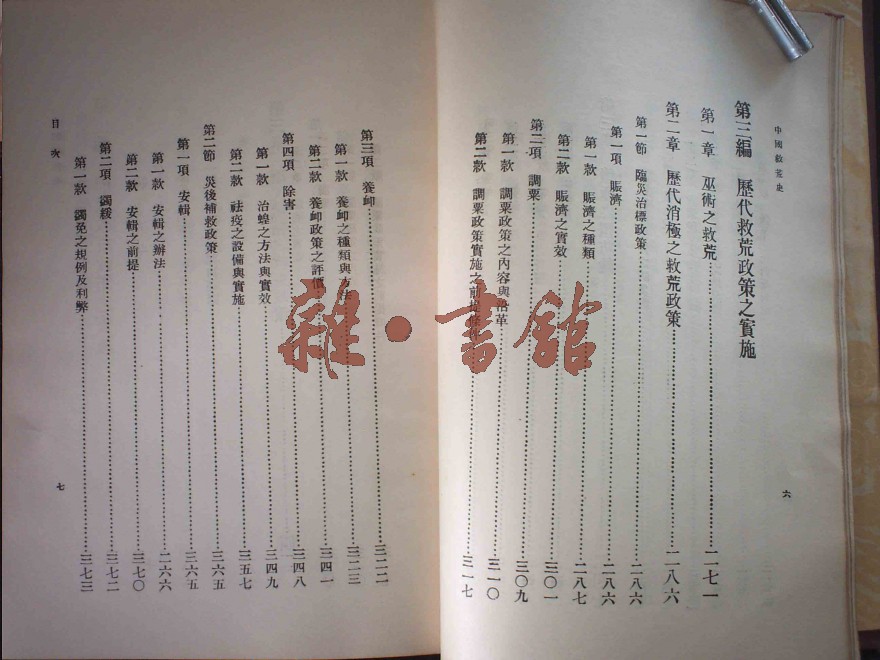 中國救荒史
第三編　歷代救荒政策之實施
第一章　巫術之救荒……二七一
第二章　歷代消極之救荒政策……二八六
第一節　臨災治標政策……二八六
第一項　賑濟……二八六
第一款　賑濟之種類……二八七
第二款　賑濟之實效……三〇一
第二項　調粟……三〇九
第一款　調粟政策之內容與沿革……三一〇
第二款　調粟政策實施之前……三一七
六
第三項　養卹……三二二
第一款　養卹之種類與方法……三二三
第二款　養卹政策之評價……三四一
第四項　除害……三四八
第一款　治蝗之方法與實效……三四九
第二款　祛疫之設備與實施……三五七
第二節　災後補救政策……三六五
第一項　安輯……三六五
第一款　安輯之辦法……二六六
第二款　安輯之前提……三七〇
第二項　蠲緩……三七二
第一款　蠲免之規例及利弊……三七三
目次
七
雜·書館